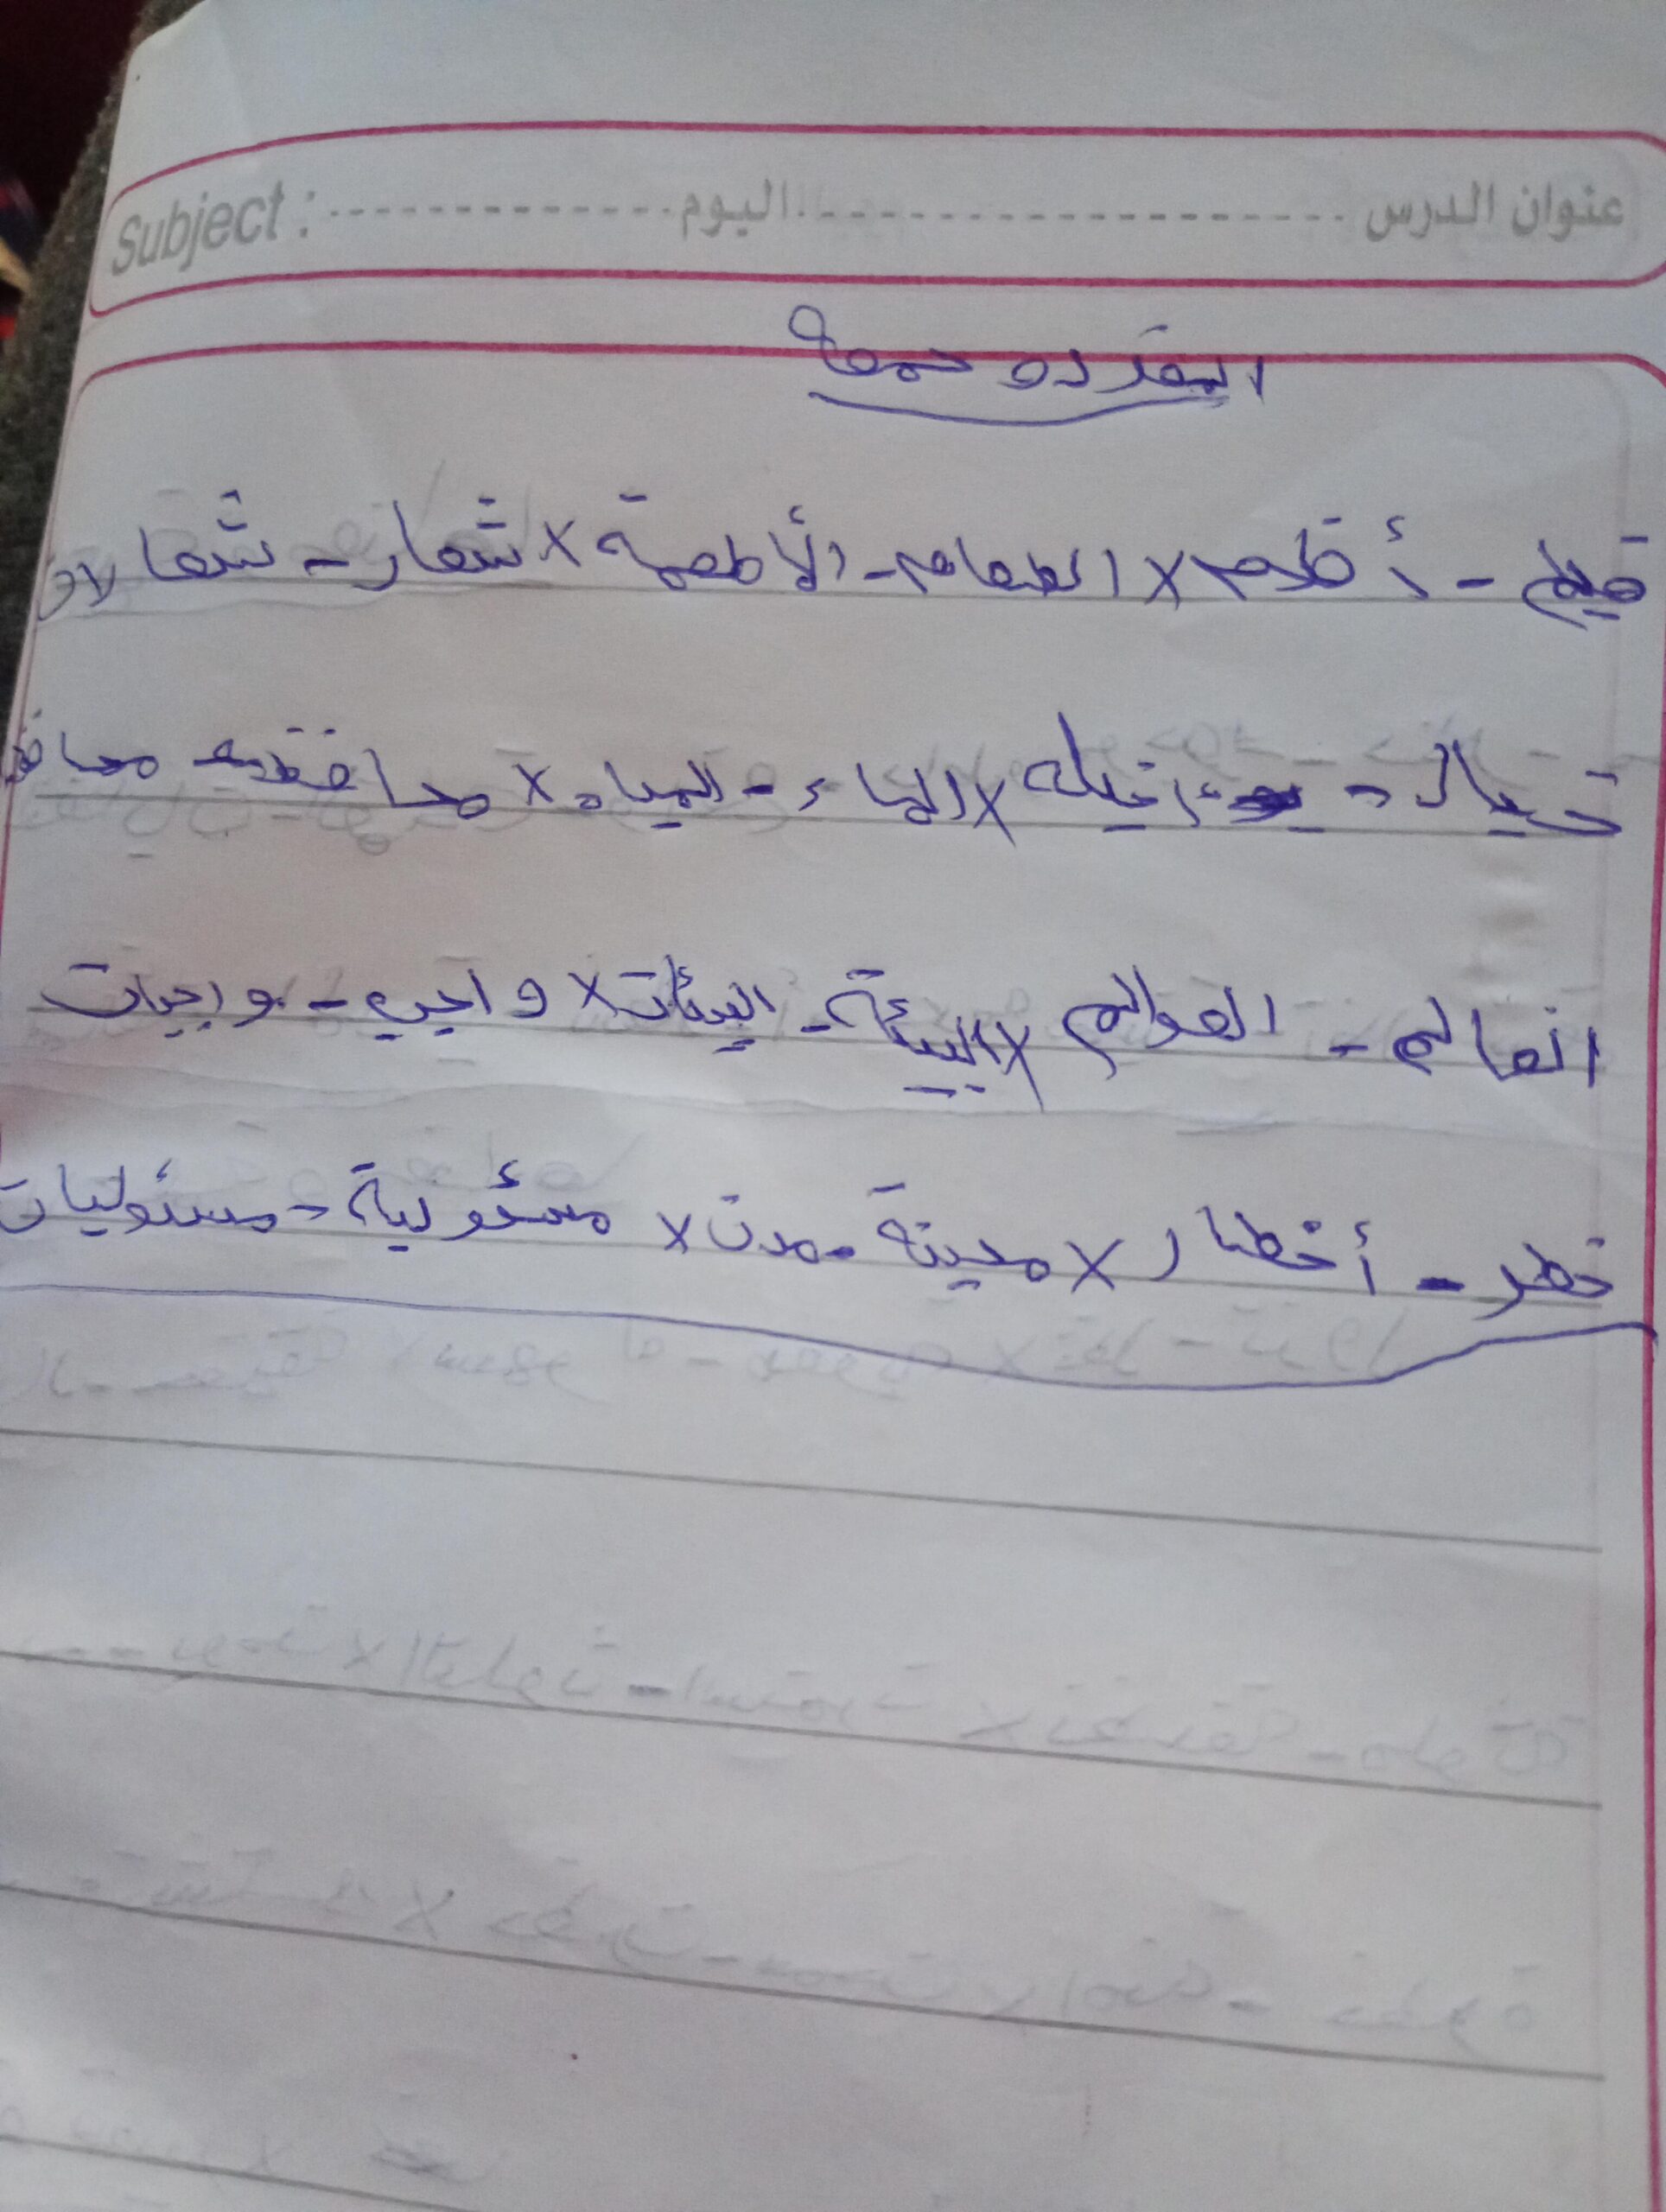 عنوان الدرس ...................... اليوم ............... Subject :
المفرد و جمعه
فيلم - أفلام x الطعام - الأطعمة x شعار - شعا
خيال - أخيله x الماء - المياه x محافظه محافظ
العالم - العوالم x البيئة - البيئات x واجب - واجبات
خطر - أخطار x مدينة - مدن x مسئولية - مسئوليات